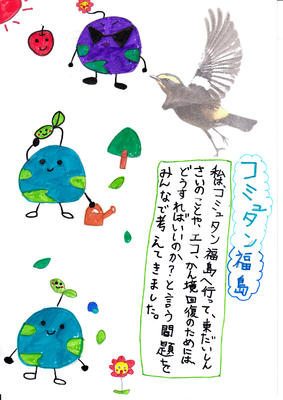 コミュタン福島
私は、コミュタン福島へ行って、東だいしん
さいのことや、エコ、かん境回復のためには
どうすればいいのか?と言う問題を
みんなで考えてきました。